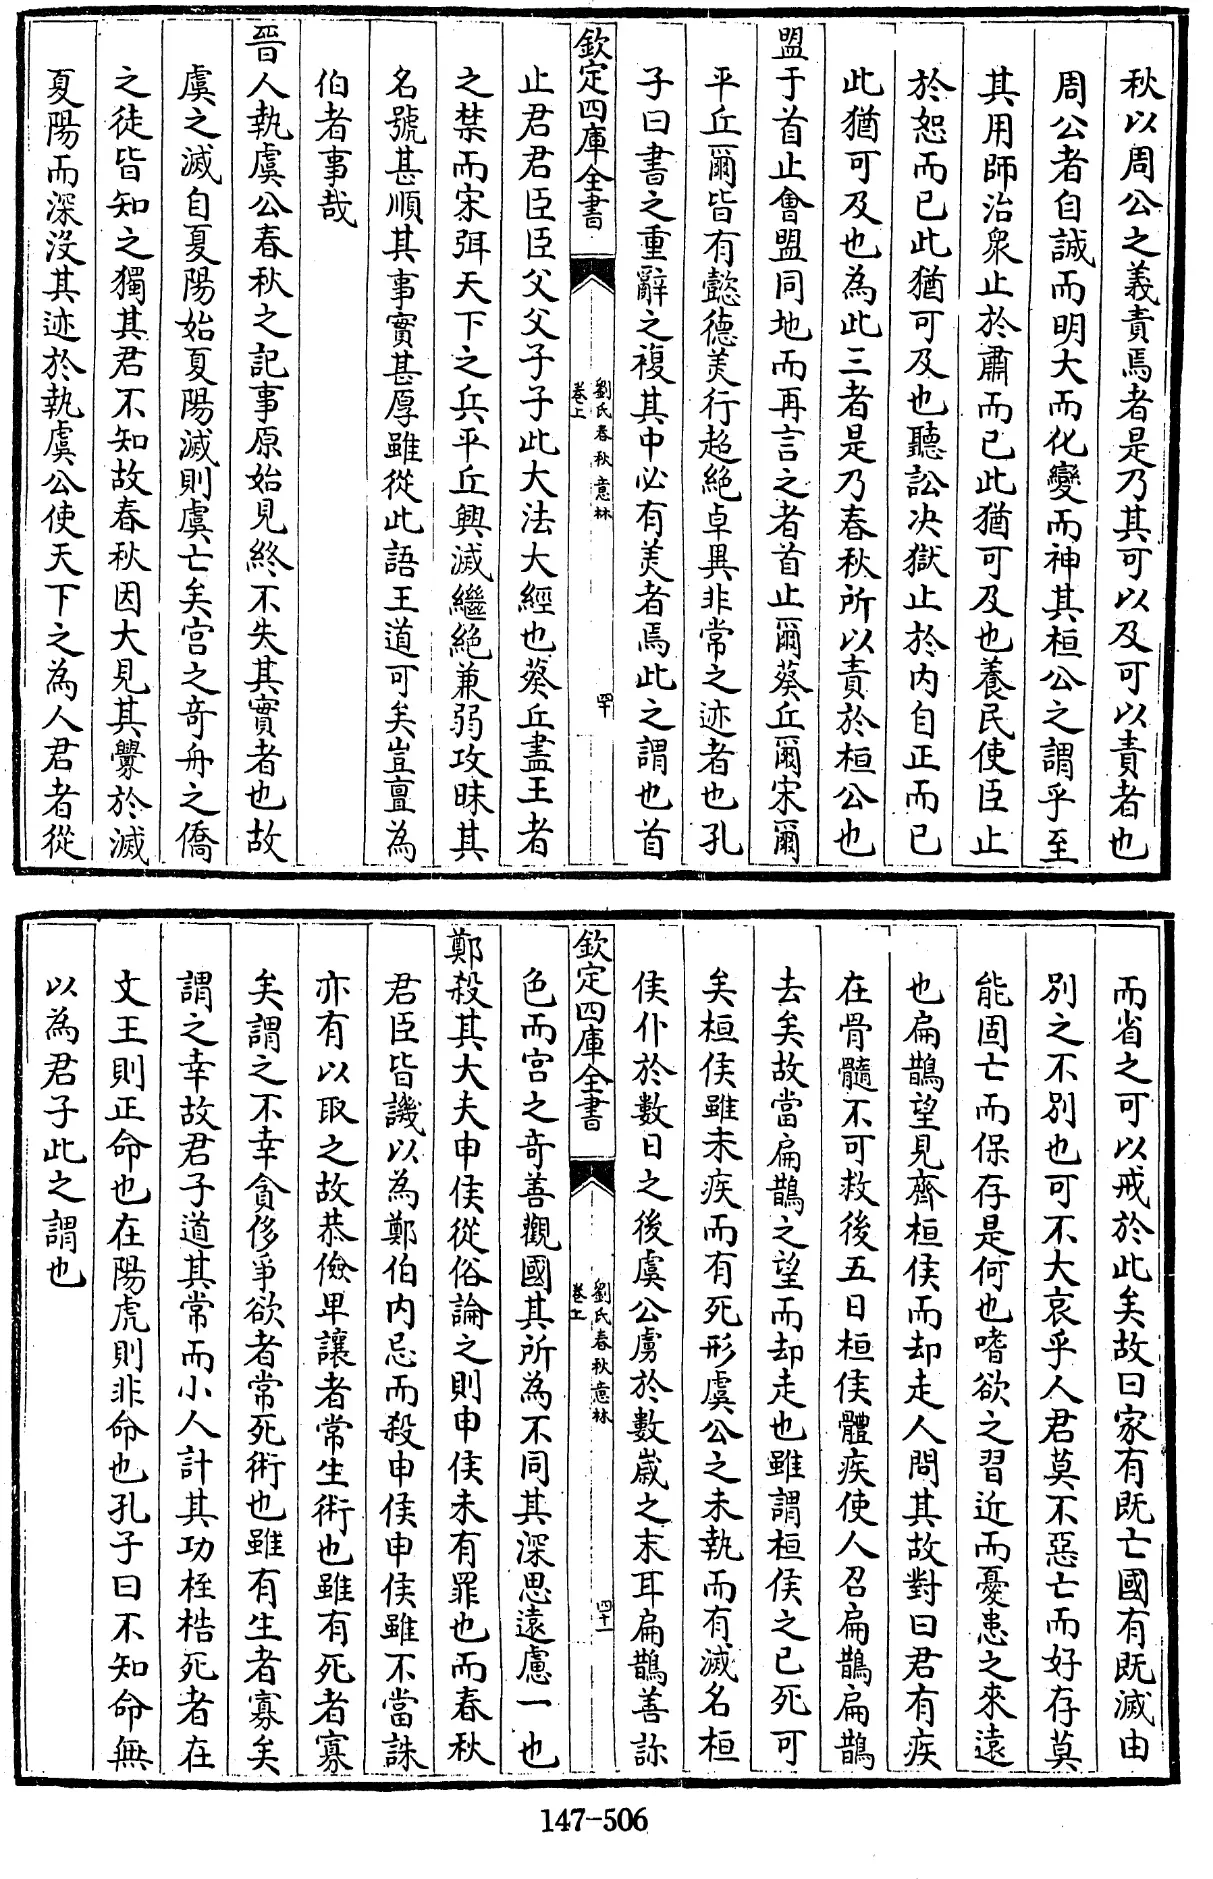 秋以周公之義責焉者是乃其可以及可以責者也
周公者自誠而明大而化變而神其桓公之謂乎至
其用師治衆止於肅而已此猶可及也養民使臣止
於恕而已此猶可及也聽訟決獄止於内自正而已
此猶可及也為此三者是乃春秋所以責於桓公也
盟于首止會盟同地而再言之者首止爾葵丘爾宋爾
平丘爾皆有懿德美行超絶卓異非常之迹者也孔
子曰書之重辭之複其中必有美者焉此之謂也首
欽定四庫全書
劉氏春秋意林
卷上
四十
止君君臣臣父父子子此大法大經也葵丘盡王者
之禁而宋弭天下之兵平丘興滅繼絶兼弱攻昧其
名號甚順其事實甚厚雖從此語王道可矣豈亶為
伯者事哉
晉人執虞公春秋之記事原始見終不失其實者也故
虞之滅自夏陽始夏陽滅則虞亡矣宫之奇舟之僑
之徒皆知之獨其君不知故春秋因大見其釁於滅
夏陽而深没其迹於執虞公使天下之為人君者從
而省之可以戒於此矣故曰家有既亡國有既滅由
别之不别也可不大哀乎人君莫不惡亡而好存莫
能固亡而保存是何也嗜欲之習近而憂患之來遠
也扁鵲望見齊桓侯而却走人問其故對曰君有疾
在骨髓不可救後五日桓侯體疾使人召扁鵲扁鵲
去矣故當扁鵲之望而却走也雖謂桓侯之已死可
矣桓侯雖未疾而有死形虞公之未執而有滅名桓
侯仆於數日之後虞公虜於數歲之末耳扁鵲善診
欽定四庫全書
劉氏春秋意林
卷上
四十一
色而宫之奇善觀國其所為不同其深思遠慮一也
鄭殺其大夫申侯從俗論之則申侯未有罪也而春秋
君臣皆譏以為鄭伯内忌而殺申侯申侯雖不當誅
亦有以取之故恭儉卑讓者常生術也雖有死者寡
矣謂之不幸貪侈爭欲者常死術也雖有生者寡矣
謂之幸故君子道其常而小人計其功桎梏死者在
文王則正命也在陽虎則非命也孔子曰不知命無
以為君子此之謂也
147-506